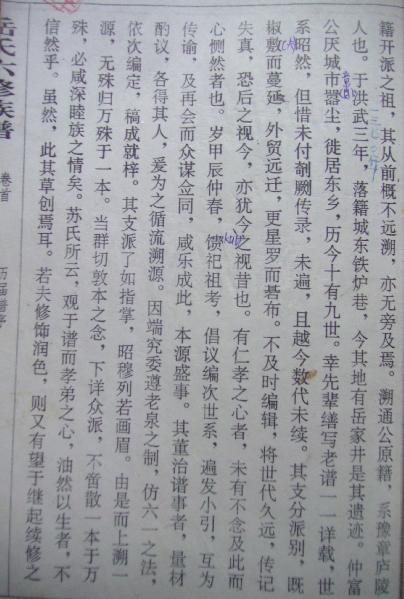 籍开派之祖，其从前概不远溯，亦无旁及焉。溯通公原籍，系豫章庐陵
人也。于洪武三年，落籍城东铁炉巷，今其地有岳家井是其遗迹。仲富
公厌城市嚣尘，徙居东乡，历今十有九世。幸先辈缮写老谱一一详载，世
系昭然，但惜未付剞劂传录，未遍，且越今数代未续。其支分派别，既
椒敷而蔓延，外贸远迁，更星罗而碁布。不及时编辑，将世代久远，传记
失真，恐后之视今，亦犹今之视昔也。有仁孝之心者，未有不念及此而
心恻然者也。岁甲辰仲春，馔祀祖考，倡议编次世系，遍发小引，互为
传谕，及再会而众谋佥同，咸乐成此，本源盛事。其董治谱事者，量材
酌议，各得其人，爰为之循流溯源。因端究委遵老泉之制，仿六一之法，
依次编定，稿成就梓。其支派了如指掌，昭穆列若画眉。由是而上溯一
源，无殊归万殊于一本。当群切敦本之念，下详众派，不啻散一本于万
殊，必咸深睦族之情矣。苏氏所云，观于谱而孝弟之心，油然以生者，不
信然乎。虽然，此其草创焉耳。若夫修饰润色，则又有望于继起续修之
岳氏六修族谱
卷首
历届谱序